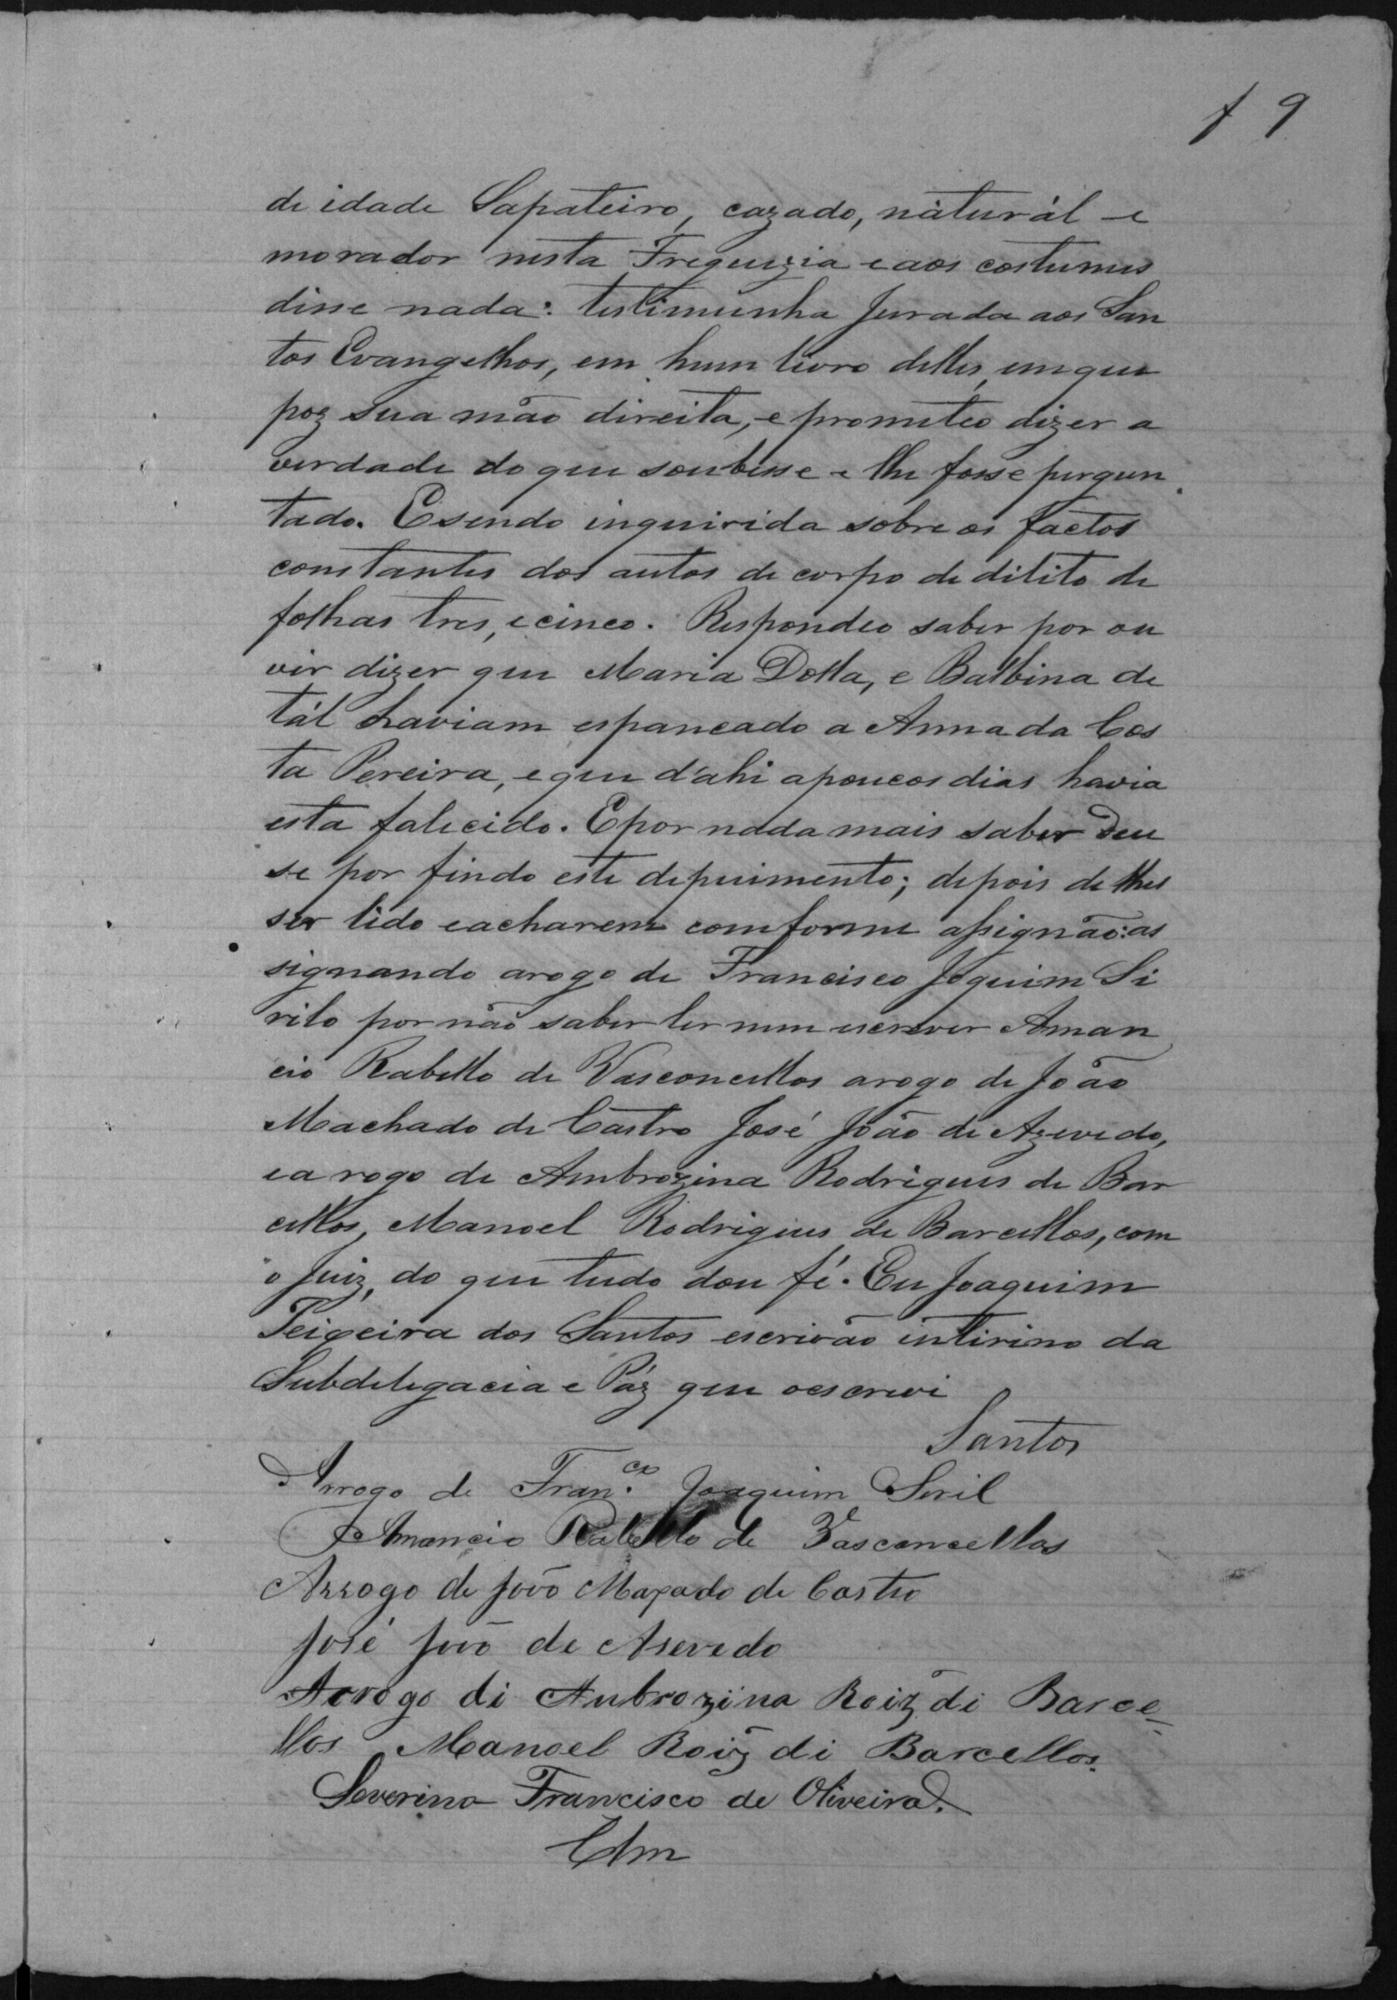 f 9
de idade Sapateiro, cazado, naturál e
morador nesta Freguezia e aos costumes
disse nada: testimunha Jurada aos San
tos Evangelhos, em hum livro delles, em que
poz sua mão direita, e prometeo dizer a
verdade do que soubesse e lhe fosse pergun
tado. E sendo inquirida sobre os factos
constantes dos autos de corpo de dilito de
folhas tres, e cinco. Respondeo saber por ou
vir dizer que Maria Della, e Balbina de
tál haviam espancado a Anna da Cos
ta Pereira, e que d'ahi a poucos dias havia
esta falecido. E por nada mais saber Deu
se por findo este depuimento; depois de lhes
ser lido e acharem comforme assignão: as
signando arogo de Francisco Joquim Si
rilo por não saber ler nem escrever Aman
cio Rabello de Vasconcellos arogo de João
Machado de Castro José João de Azevedo,
e a rogo de Ambrozina Rodrigues de Bar
cellos, Manoel Rodrigues de Barcellos, com
o Juiz, do que tudo dou fé. Eu Joaquim
Teixeira dos Santos escrivão intirino da
Subdelegacia e Páz que o escrevi
Santos
Arrogo de Fran.co Joaquim Seril
Amancio Rabello de Vasconcellos
Arrogo de João Maxado de Castro
José João de Asevedo
Arrogo di Aubrozina Roiz di Barce
llos Manoel Roiz di Barcellos.
Severino Francisco de Oliveira.